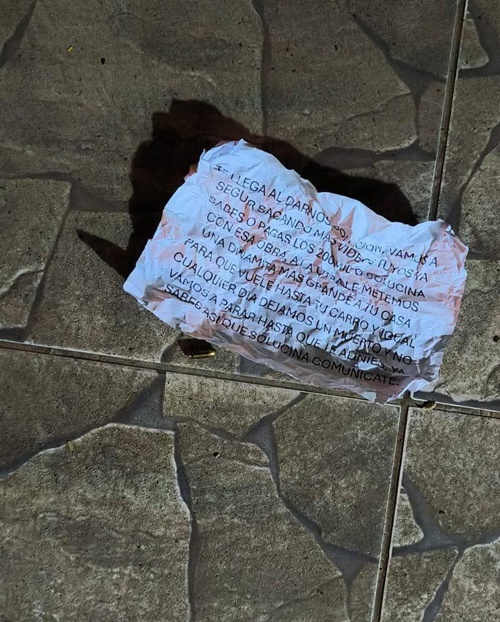 LLEGA AL DARNOS VAMOS A
SEGUIR SACANDO MAS TUYOS YA
SABES O PAGAS LOS 200 MIL O SOLUCINA
CON ESA OBRA A LA O SALE METEMOS
UNA DINAMITA MAS GRANDE A TU CASA
PARA QUE VUELE HASTA TU CARRO Y IGUAL
CUALQUIER DIA DEJAMOS UN MUERTO Y NO
VAMOS A PARAR HASTA QUE TE YA
SABES ASI QUE SOLUCINA COMUNICATE.